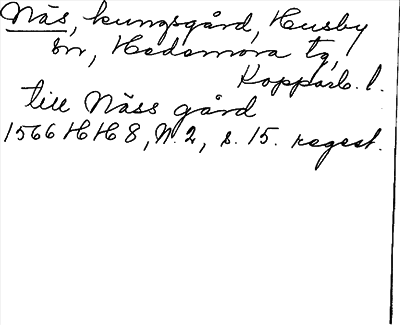 Näs, kungsgård, Husby
sn, Hedemora tg,
Kopparb. l.
till Näss gård
1566 HH 8, N. 2, s. 15. regest.